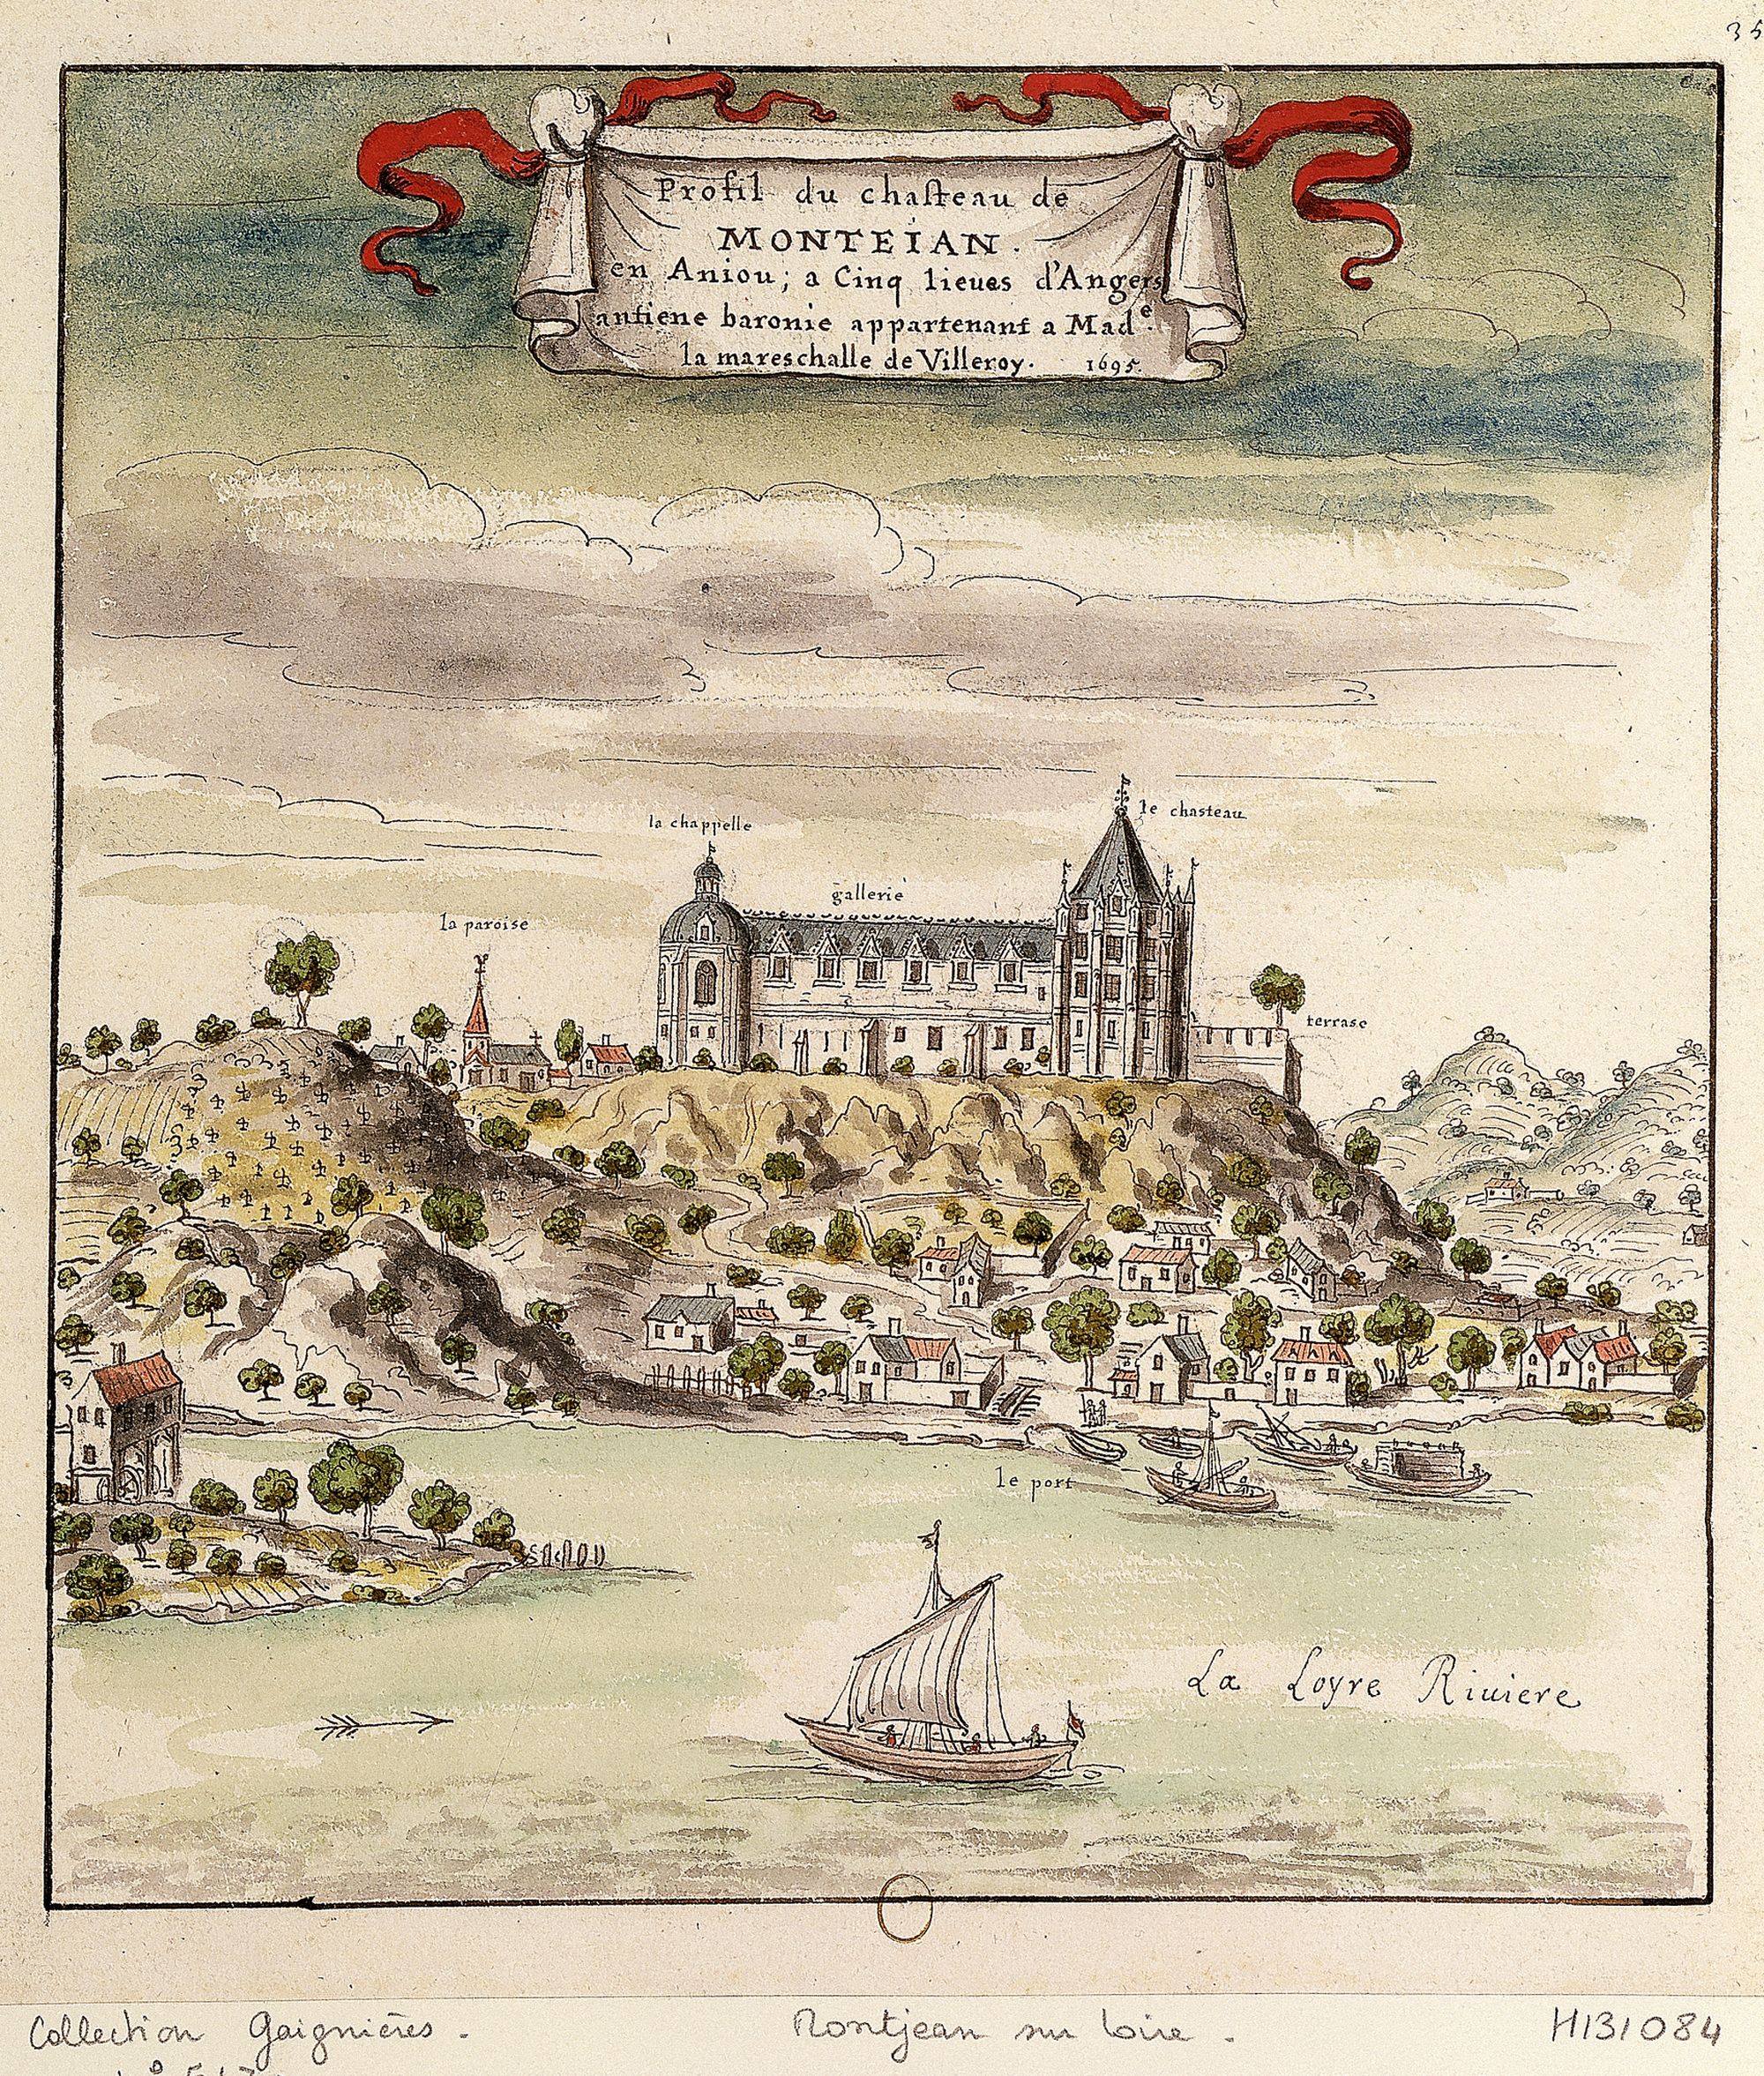 35
Profil du chasteau de
MONTEIAN.
en Aniou; a Cinq lieues d'Angers
antiene baronie appartenant a Made.
la mareschalle de Villeroy. 1695.
le chasteau
la chappelle
gallerie
la paroise
terrase
le port
La Loyre Riuiere
Collection Gaignières.
Montjean sur Loire.
H131084